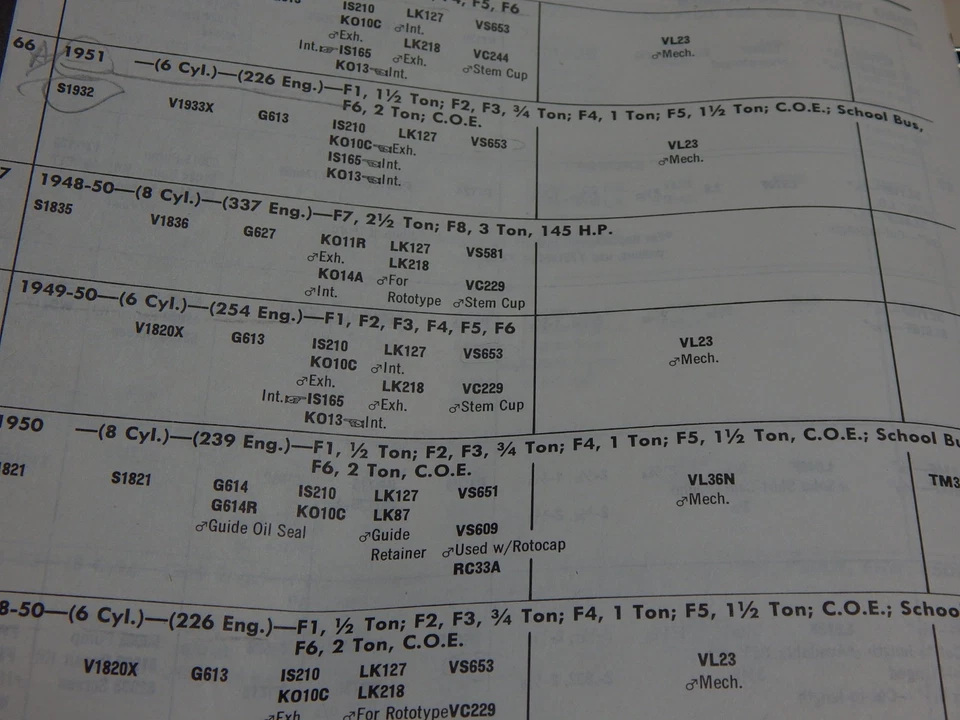 F5, F6
IS210 LK127 VS653
KO10C ♂Int.
♂Exh. LK218 VC244
Int.☞IS165 ♂Exh. ♂Stem Cup
KO13☜Int.
VL23
♂Mech.
66 1951 —(6 Cyl.)—(226 Eng.)—F1, 1½ Ton; F2, F3, ¾ Ton; F4, 1 Ton; F5, 1½ Ton; C.O.E.; School Bus,
F6, 2 Ton; C.O.E.
S1932 V1933X G613 IS210 LK127 VS653
KO10C☜Exh.
IS165☜Int.
KO13☜Int.
VL23
♂Mech.
7 1948-50—(8 Cyl.)—(337 Eng.)—F7, 2½ Ton; F8, 3 Ton, 145 H.P.
S1835 V1836 G627 KO11R LK127 VS581
♂Exh. LK218
KO14A ♂For VC229
♂Int. Rototype ♂Stem Cup
1949-50—(6 Cyl.)—(254 Eng.)—F1, F2, F3, F4, F5, F6
V1820X G613 IS210 LK127 VS653
KO10C ♂Int.
♂Exh. LK218 VC229
Int.☞IS165 ♂Exh. ♂Stem Cup
KO13☜Int.
VL23
♂Mech.
1950 —(8 Cyl.)—(239 Eng.)—F1, ½ Ton; F2, F3, ¾ Ton; F4, 1 Ton; F5, 1½ Ton, C.O.E.; School Bu
F6, 2 Ton, C.O.E.
1821 S1821 G614 IS210 LK127 VS651
G614R KO10C LK87
♂Guide Oil Seal ♂Guide VS609
Retainer ♂Used w/Rotocap
RC33A
VL36N
♂Mech.
TM3
8-50—(6 Cyl.)—(226 Eng.)—F1, ½ Ton; F2, F3, ¾ Ton; F4, 1 Ton; F5, 1½ Ton; C.O.E.; Schoo
F6, 2 Ton, C.O.E.
V1820X G613 IS210 LK127 VS653
KO10C LK218
♂Exh. ♂For Rototype VC229
VL23
♂Mech.